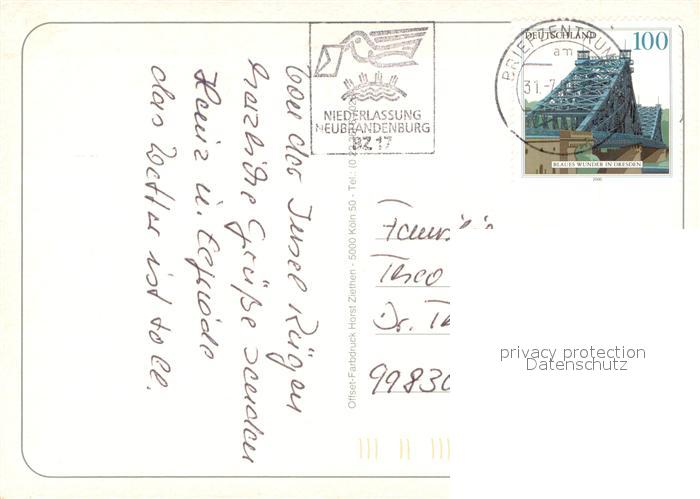 Von der Insel Rügen
herzliche Grüße senden
Heinz u. Elfriede
das Wetter ist toll.
NIEDERLASSUNG
NEUBRANDENBURG
BZ 17
BRIEFZENTRUM
am
31.-7
DEUTSCHLAND
100
BLAUES WUNDER IN DRESDEN
2000
Offset-Farbdruck Horst Ziethen - 5000 Köln 50 - Tel.:
Theo
Dr.
9983
privacy protection
Datenschutz